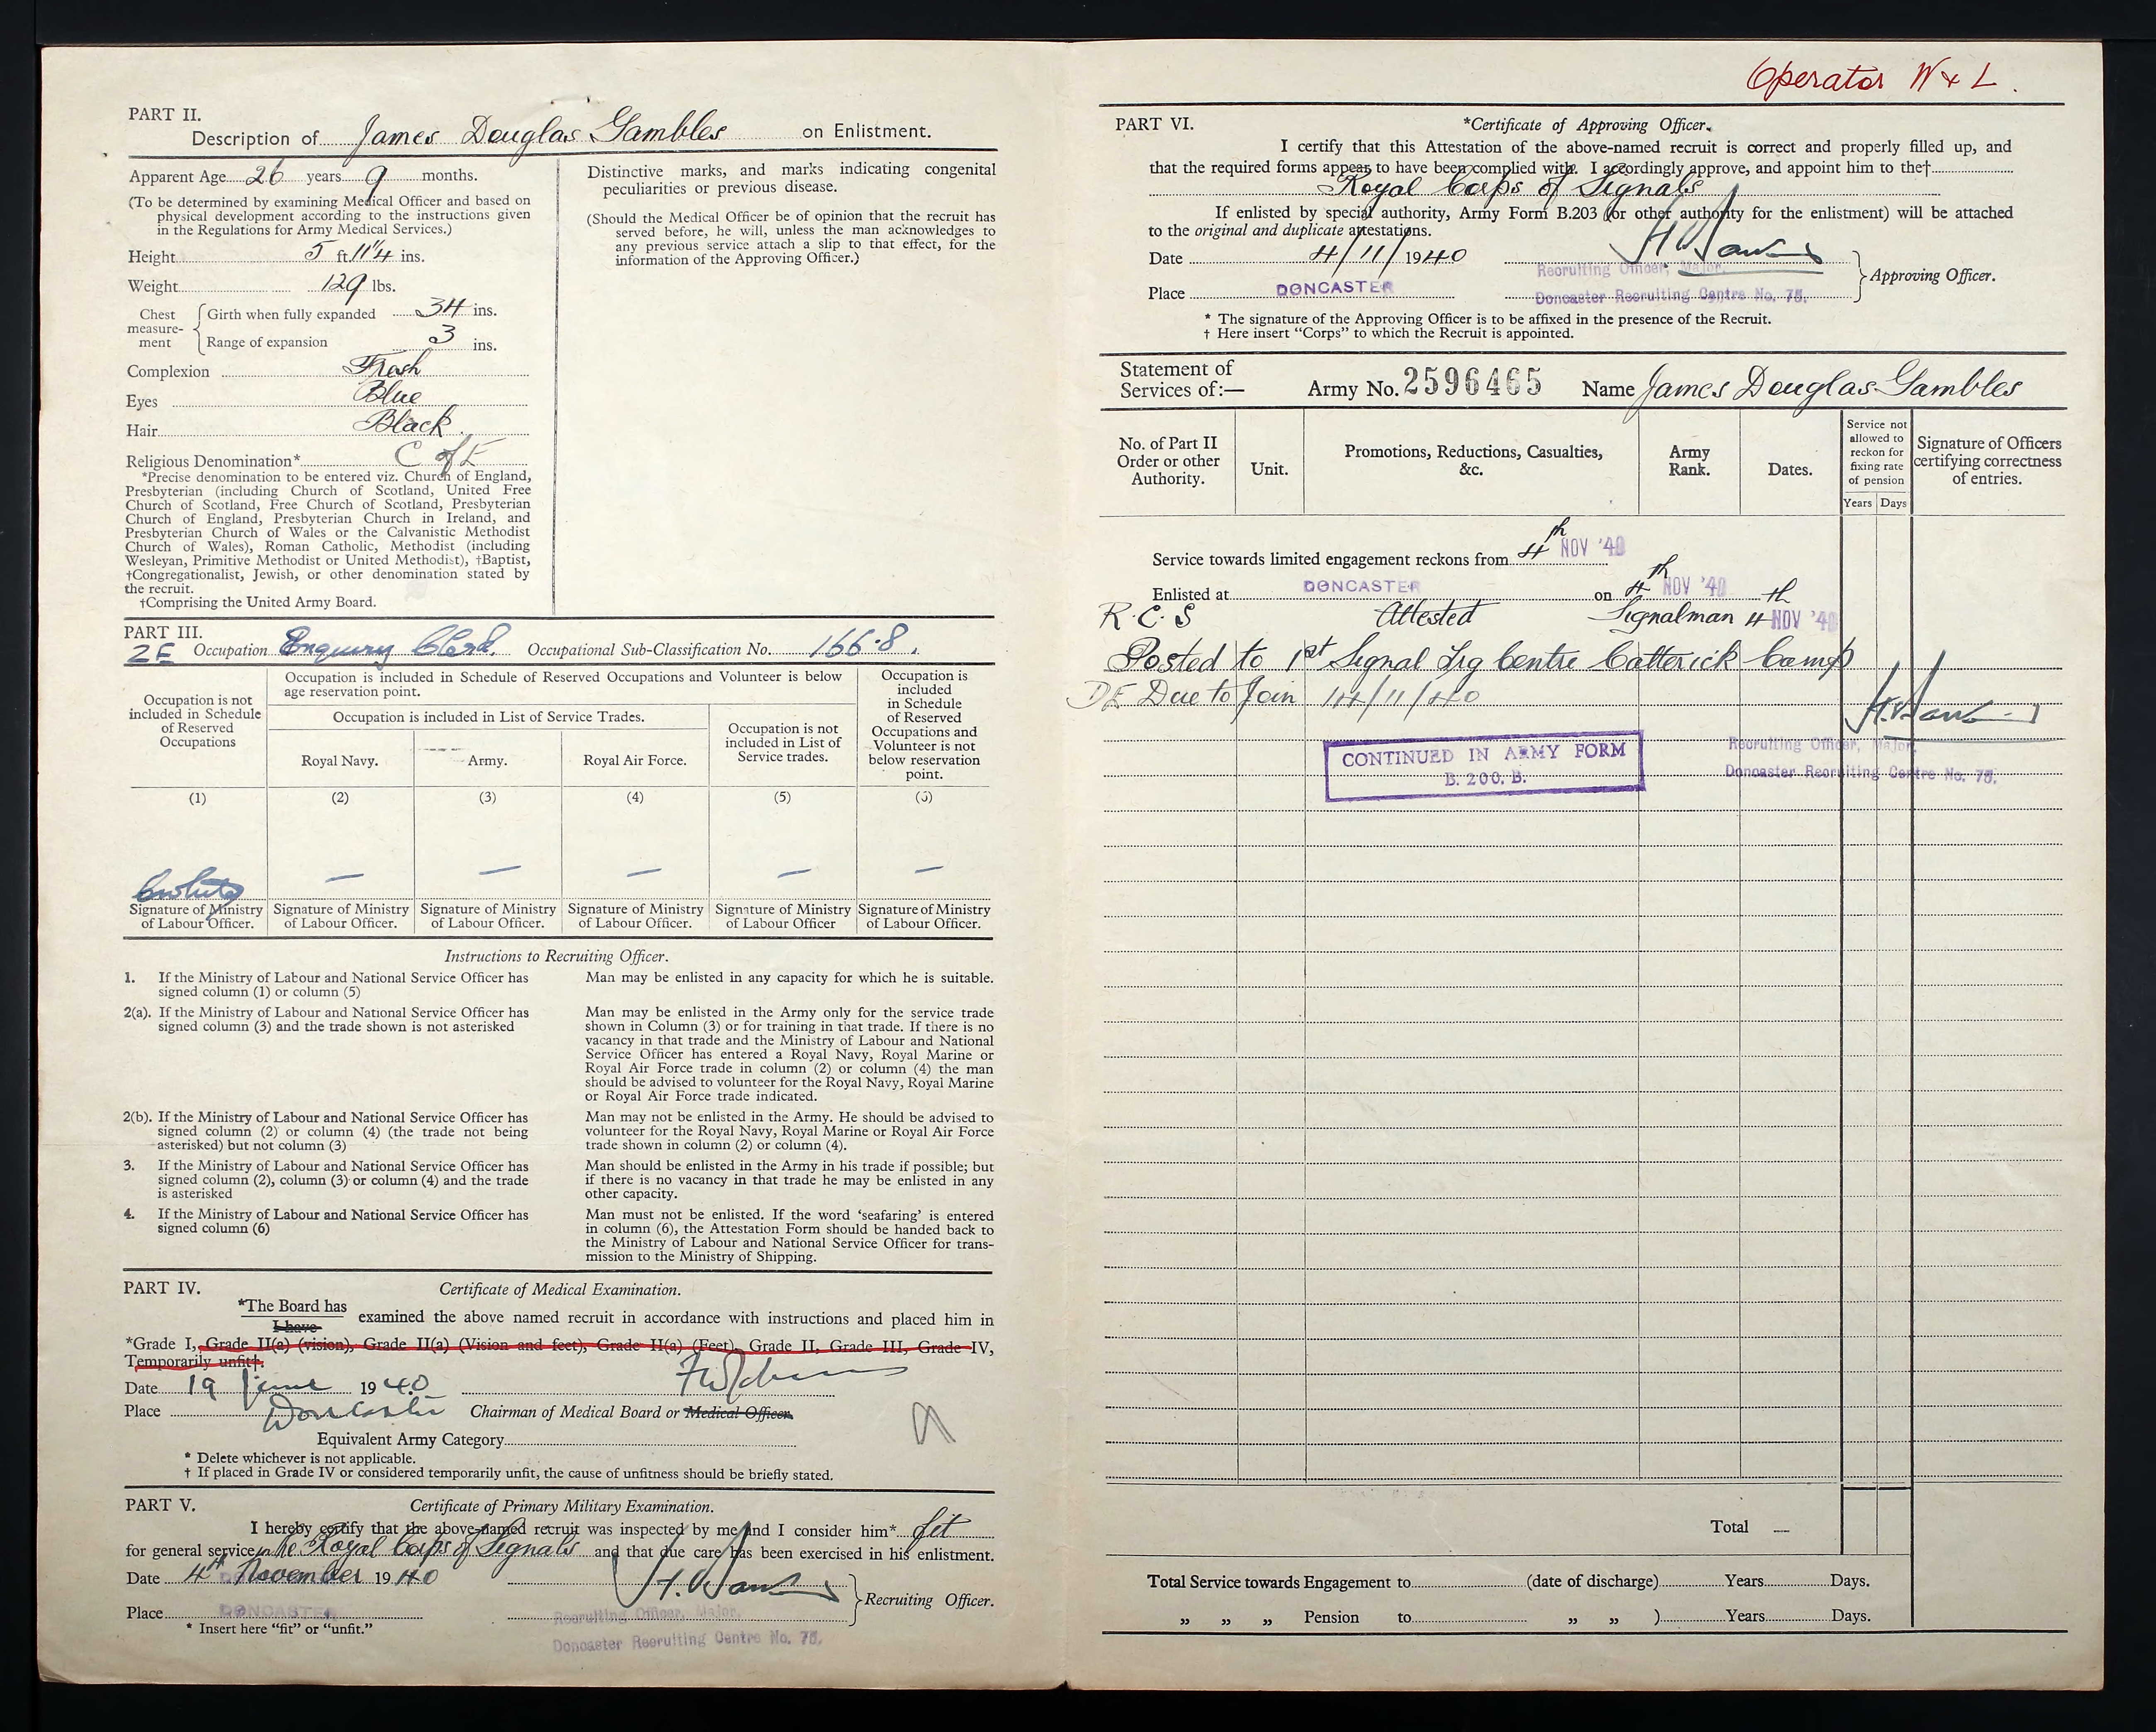 PART II.
Description of James Douglas Gambles on Enlistment.
Apparent Age 26 years 9 months.
(To be determined by examining Medical Officer and based on
physical development according to the instructions given
in the Regulations for Army Medical Services.)
Height 5 ft. 11 1/4 ins.
Weight 129 lbs.
Chest measure-ment
Girth when fully expanded 34 ins.
Range of expansion 3 ins.
Complexion Fresh
Eyes Blue
Hair Black
Religious Denomination* C of E
*Precise denomination to be entered viz. Church of England,
Presbyterian (including Church of Scotland, United Free
Church of Scotland, Free Church of Scotland, Presbyterian
Church of England, Presbyterian Church in Ireland, and
Presbyterian Church of Wales or the Calvanistic Methodist
Church of Wales), Roman Catholic, Methodist (including
Wesleyan, Primitive Methodist or United Methodist), †Baptist,
†Congregationalist, Jewish, or other denomination stated by
the recruit.
†Comprising the United Army Board.
Distinctive marks, and marks indicating congenital
peculiarities or previous disease.
(Should the Medical Officer be of opinion that the recruit has
served before, he will, unless the man acknowledges to
any previous service attach a slip to that effect, for the
information of the Approving Officer.)
PART III.
2E Occupation Enquiry Clerk. Occupational Sub-Classification No. 166·8.
Occupation is not
included in Schedule
of Reserved
Occupations
Occupation is included in Schedule of Reserved Occupations and Volunteer is below
age reservation point.
Occupation is included in List of Service Trades.
Royal Navy.
Army.
Royal Air Force.
Occupation is not
included in List of
Service trades.
Occupation is
included
in Schedule
of Reserved
Occupations and
Volunteer is not
below reservation
point.
(1) (2) (3) (4) (5) (6)
— — — — —
Signature of Ministry Signature of Ministry Signature of Ministry Signature of Ministry Signature of Ministry Signature of Ministry
of Labour Officer. of Labour Officer. of Labour Officer. of Labour Officer. of Labour Officer of Labour Officer.
Instructions to Recruiting Officer.
1. If the Ministry of Labour and National Service Officer has
signed column (1) or column (5)
Man may be enlisted in any capacity for which he is suitable.
2(a). If the Ministry of Labour and National Service Officer has
signed column (3) and the trade shown is not asterisked
Man may be enlisted in the Army only for the service trade
shown in Column (3) or for training in that trade. If there is no
vacancy in that trade and the Ministry of Labour and National
Service Officer has entered a Royal Navy, Royal Marine or
Royal Air Force trade in column (2) or column (4) the man
should be advised to volunteer for the Royal Navy, Royal Marine
or Royal Air Force trade indicated.
2(b). If the Ministry of Labour and National Service Officer has
signed column (2) or column (4) (the trade not being
asterisked) but not column (3)
Man may not be enlisted in the Army. He should be advised to
volunteer for the Royal Navy, Royal Marine or Royal Air Force
trade shown in column (2) or column (4).
3. If the Ministry of Labour and National Service Officer has
signed column (2), column (3) or column (4) and the trade
is asterisked
Man should be enlisted in the Army in his trade if possible; but
if there is no vacancy in that trade he may be enlisted in any
other capacity.
4. If the Ministry of Labour and National Service Officer has
signed column (6)
Man must not be enlisted. If the word ‘seafaring’ is entered
in column (6), the Attestation Form should be handed back to
the Ministry of Labour and National Service Officer for trans-
mission to the Ministry of Shipping.
PART IV. Certificate of Medical Examination.
*The Board has
I have
examined the above named recruit in accordance with instructions and placed him in
*Grade I, Grade II(a) (vision), Grade II(a) (Vision and feet), Grade II(a) (Feet), Grade II, Grade III, Grade IV,
Temporarily unfit†.
Date 19 June 1940
Place Doncaster Chairman of Medical Board or Medical Officer.
Equivalent Army Category
* Delete whichever is not applicable.
† If placed in Grade IV or considered temporarily unfit, the cause of unfitness should be briefly stated.
PART V. Certificate of Primary Military Examination.
I hereby certify that the above-named recruit was inspected by me and I consider him* fit
for general service in the Royal Corps of Signals and that due care has been exercised in his enlistment.
Date 4th November 1940
Place DONCASTER
Recruiting Officer.
Recruiting Officer, Major.
* Insert here “fit” or “unfit.”
Doncaster Recruiting Centre No. 75.
Operator W & L.
PART VI. *Certificate of Approving Officer.
I certify that this Attestation of the above-named recruit is correct and properly filled up, and
that the required forms appear to have been complied with. I accordingly approve, and appoint him to the†
Royal Corps of Signals
If enlisted by special authority, Army Form B.203 (or other authority for the enlistment) will be attached
to the original and duplicate attestations.
Date 4/11/1940
Recruiting Officer, Major.
Approving Officer.
Place DONCASTER
Doncaster Recruiting Centre No. 75.
* The signature of the Approving Officer is to be affixed in the presence of the Recruit.
† Here insert “Corps” to which the Recruit is appointed.
Statement of
Services of:— Army No. 2596465 Name James Douglas Gambles
No. of Part II
Order or other
Authority.
Unit.
Promotions, Reductions, Casualties,
&c.
Army
Rank.
Dates.
Service not
allowed to
reckon for
fixing rate
of pension
Years Days
Signature of Officers
certifying correctness
of entries.
Service towards limited engagement reckons from 4th NOV '40
Enlisted at DONCASTER on 4th NOV '40
R.C.S Attested Signalman 4th NOV '40
Posted to 1st Signal Trg Centre Catterick Camp
DE Due to Join 14/11/40
CONTINUED IN ARMY FORM
B. 200. B.
Recruiting Officer, Major.
Doncaster Recruiting Centre No. 75.
Total —
Total Service towards Engagement to (date of discharge) Years Days.
„ „ „ Pension to „ „ ) Years Days.